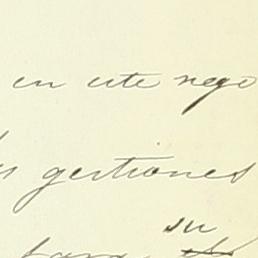 en este nego
gestiones
su
para